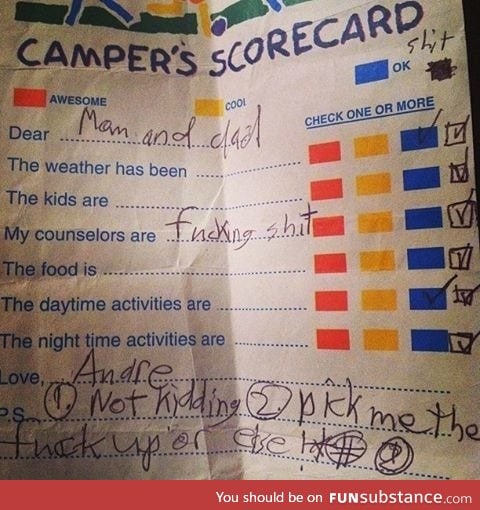 CAMPER'S SCORECARD
shit
OK
AWESOME
COOL
CHECK ONE OR MORE
Dear Mom and dad
The weather has been
The kids are
My counselors are fucking shit
The food is
The daytime activities are
The night time activities are
Love, Andre
P.S. ① Not kidding ② pick me the
fuck up or else
You should be on FUNsubstance.com